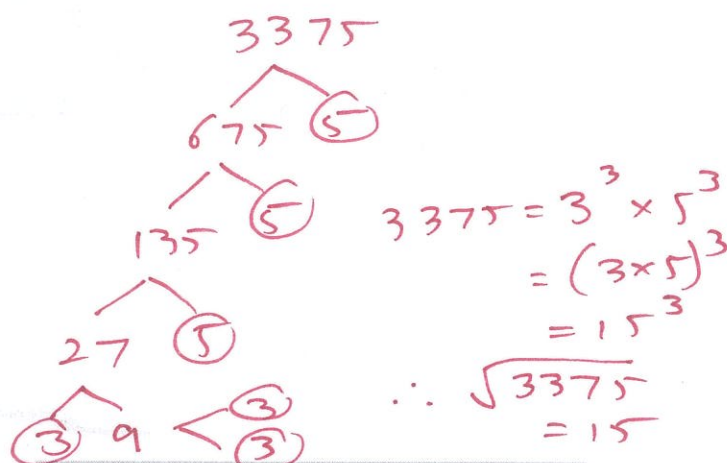 3375
675 5
135 5
27 5
3 9 3
3
3375 = 3³ × 5³
= (3×5)³
= 15³
∴ √3375
= 15